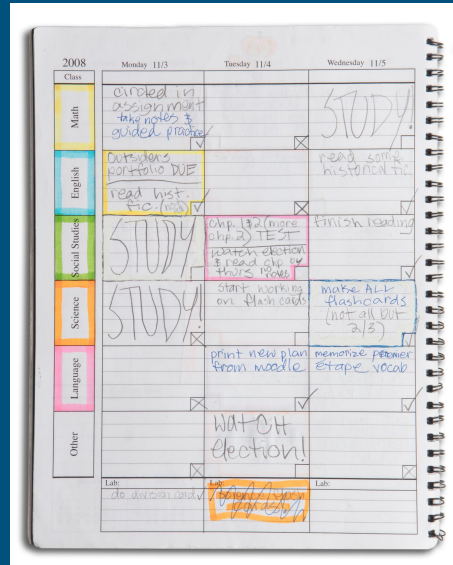 2008
Monday 11/3
Tuesday 11/4
Wednesday 11/5
Class
Math
circled in
assignment
take notes &
guided practice
STUDY!
English
Outsiders
portfolio DUE
read hist.
fic.
read some
historical fic.
Social Studies
STUDY!
chp. 1 & 2 (more
chp 2) TEST
watch election
& read chp by
thurs
finish reading
Science
STUDY!
start working
on flash cards
make ALL
flashcards
(not all but
2/3)
Language
print new plan
from moodle
memorize premier
étape vocab
Other
WATCH
election!
Lab:
Lab:
Lab:
do